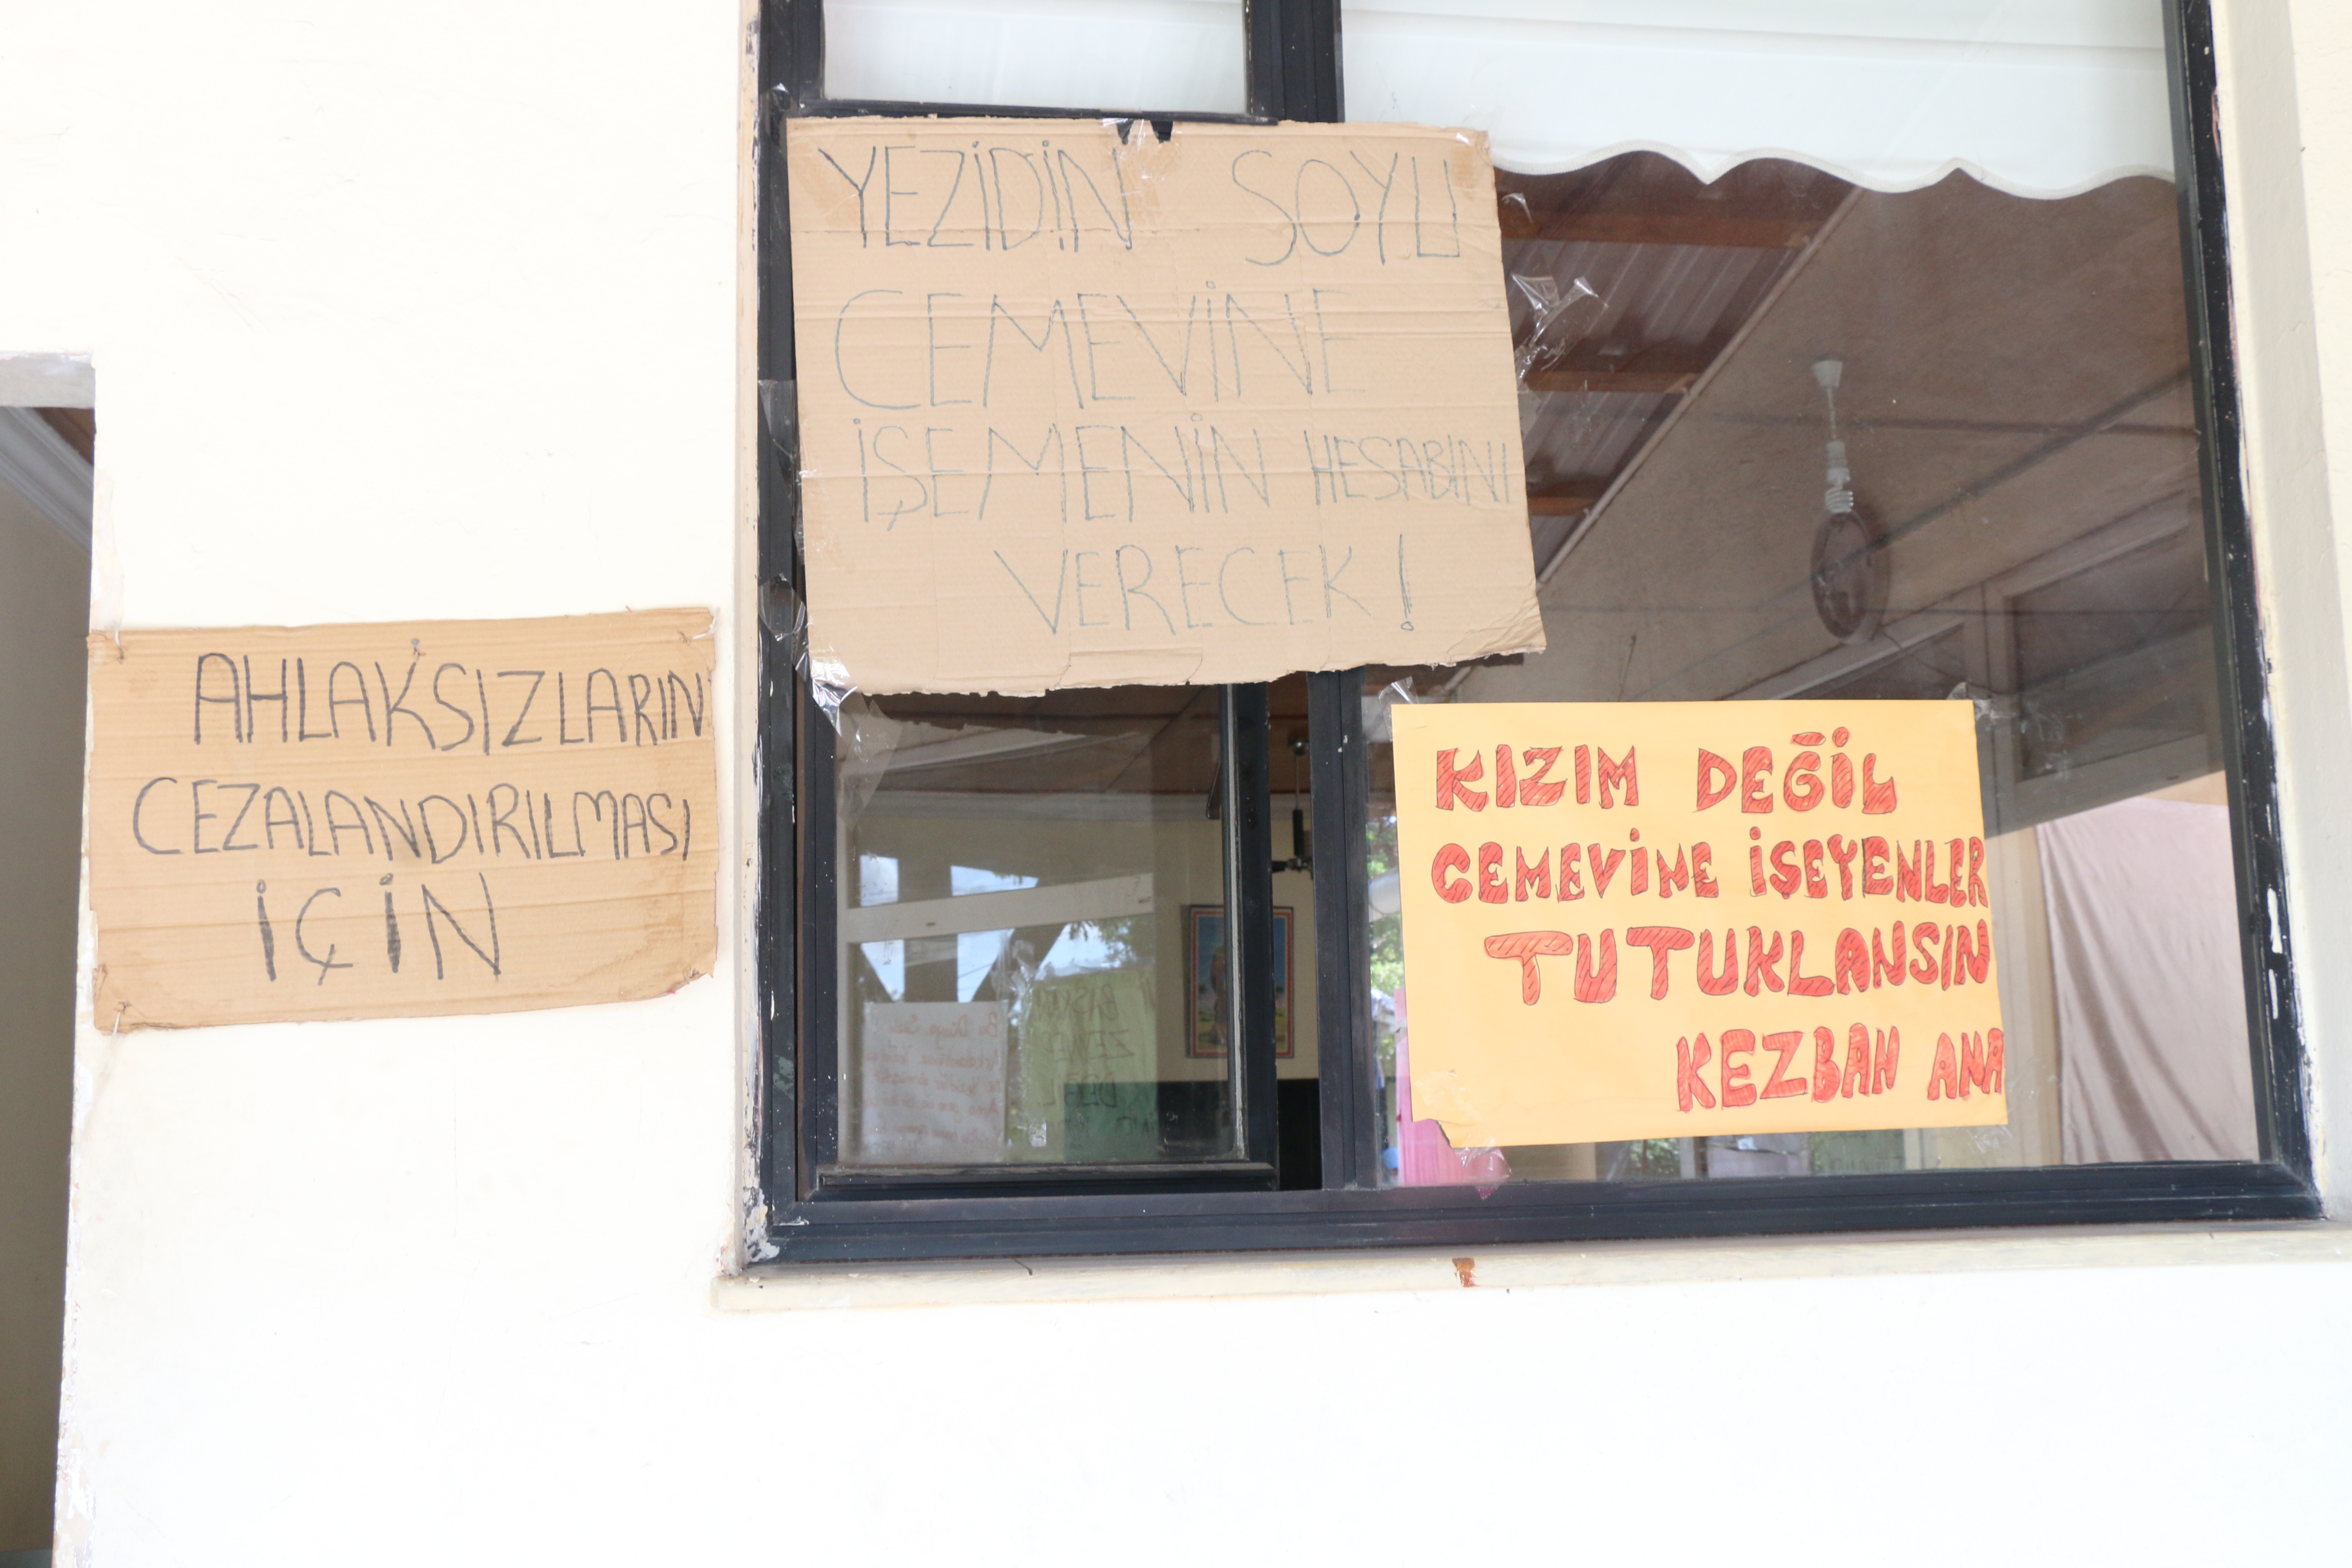 YEZİDİN SOYU
CEMEVİNE
İŞEMENİN HESABINI
VERECEK!
AHLAKSIZLARIN
CEZALANDIRILMASI
İÇİN
KIZIM DEĞİL
CEMEVİNE İŞEYENLER
TUTUKLANSIN
KEZBAN ANA